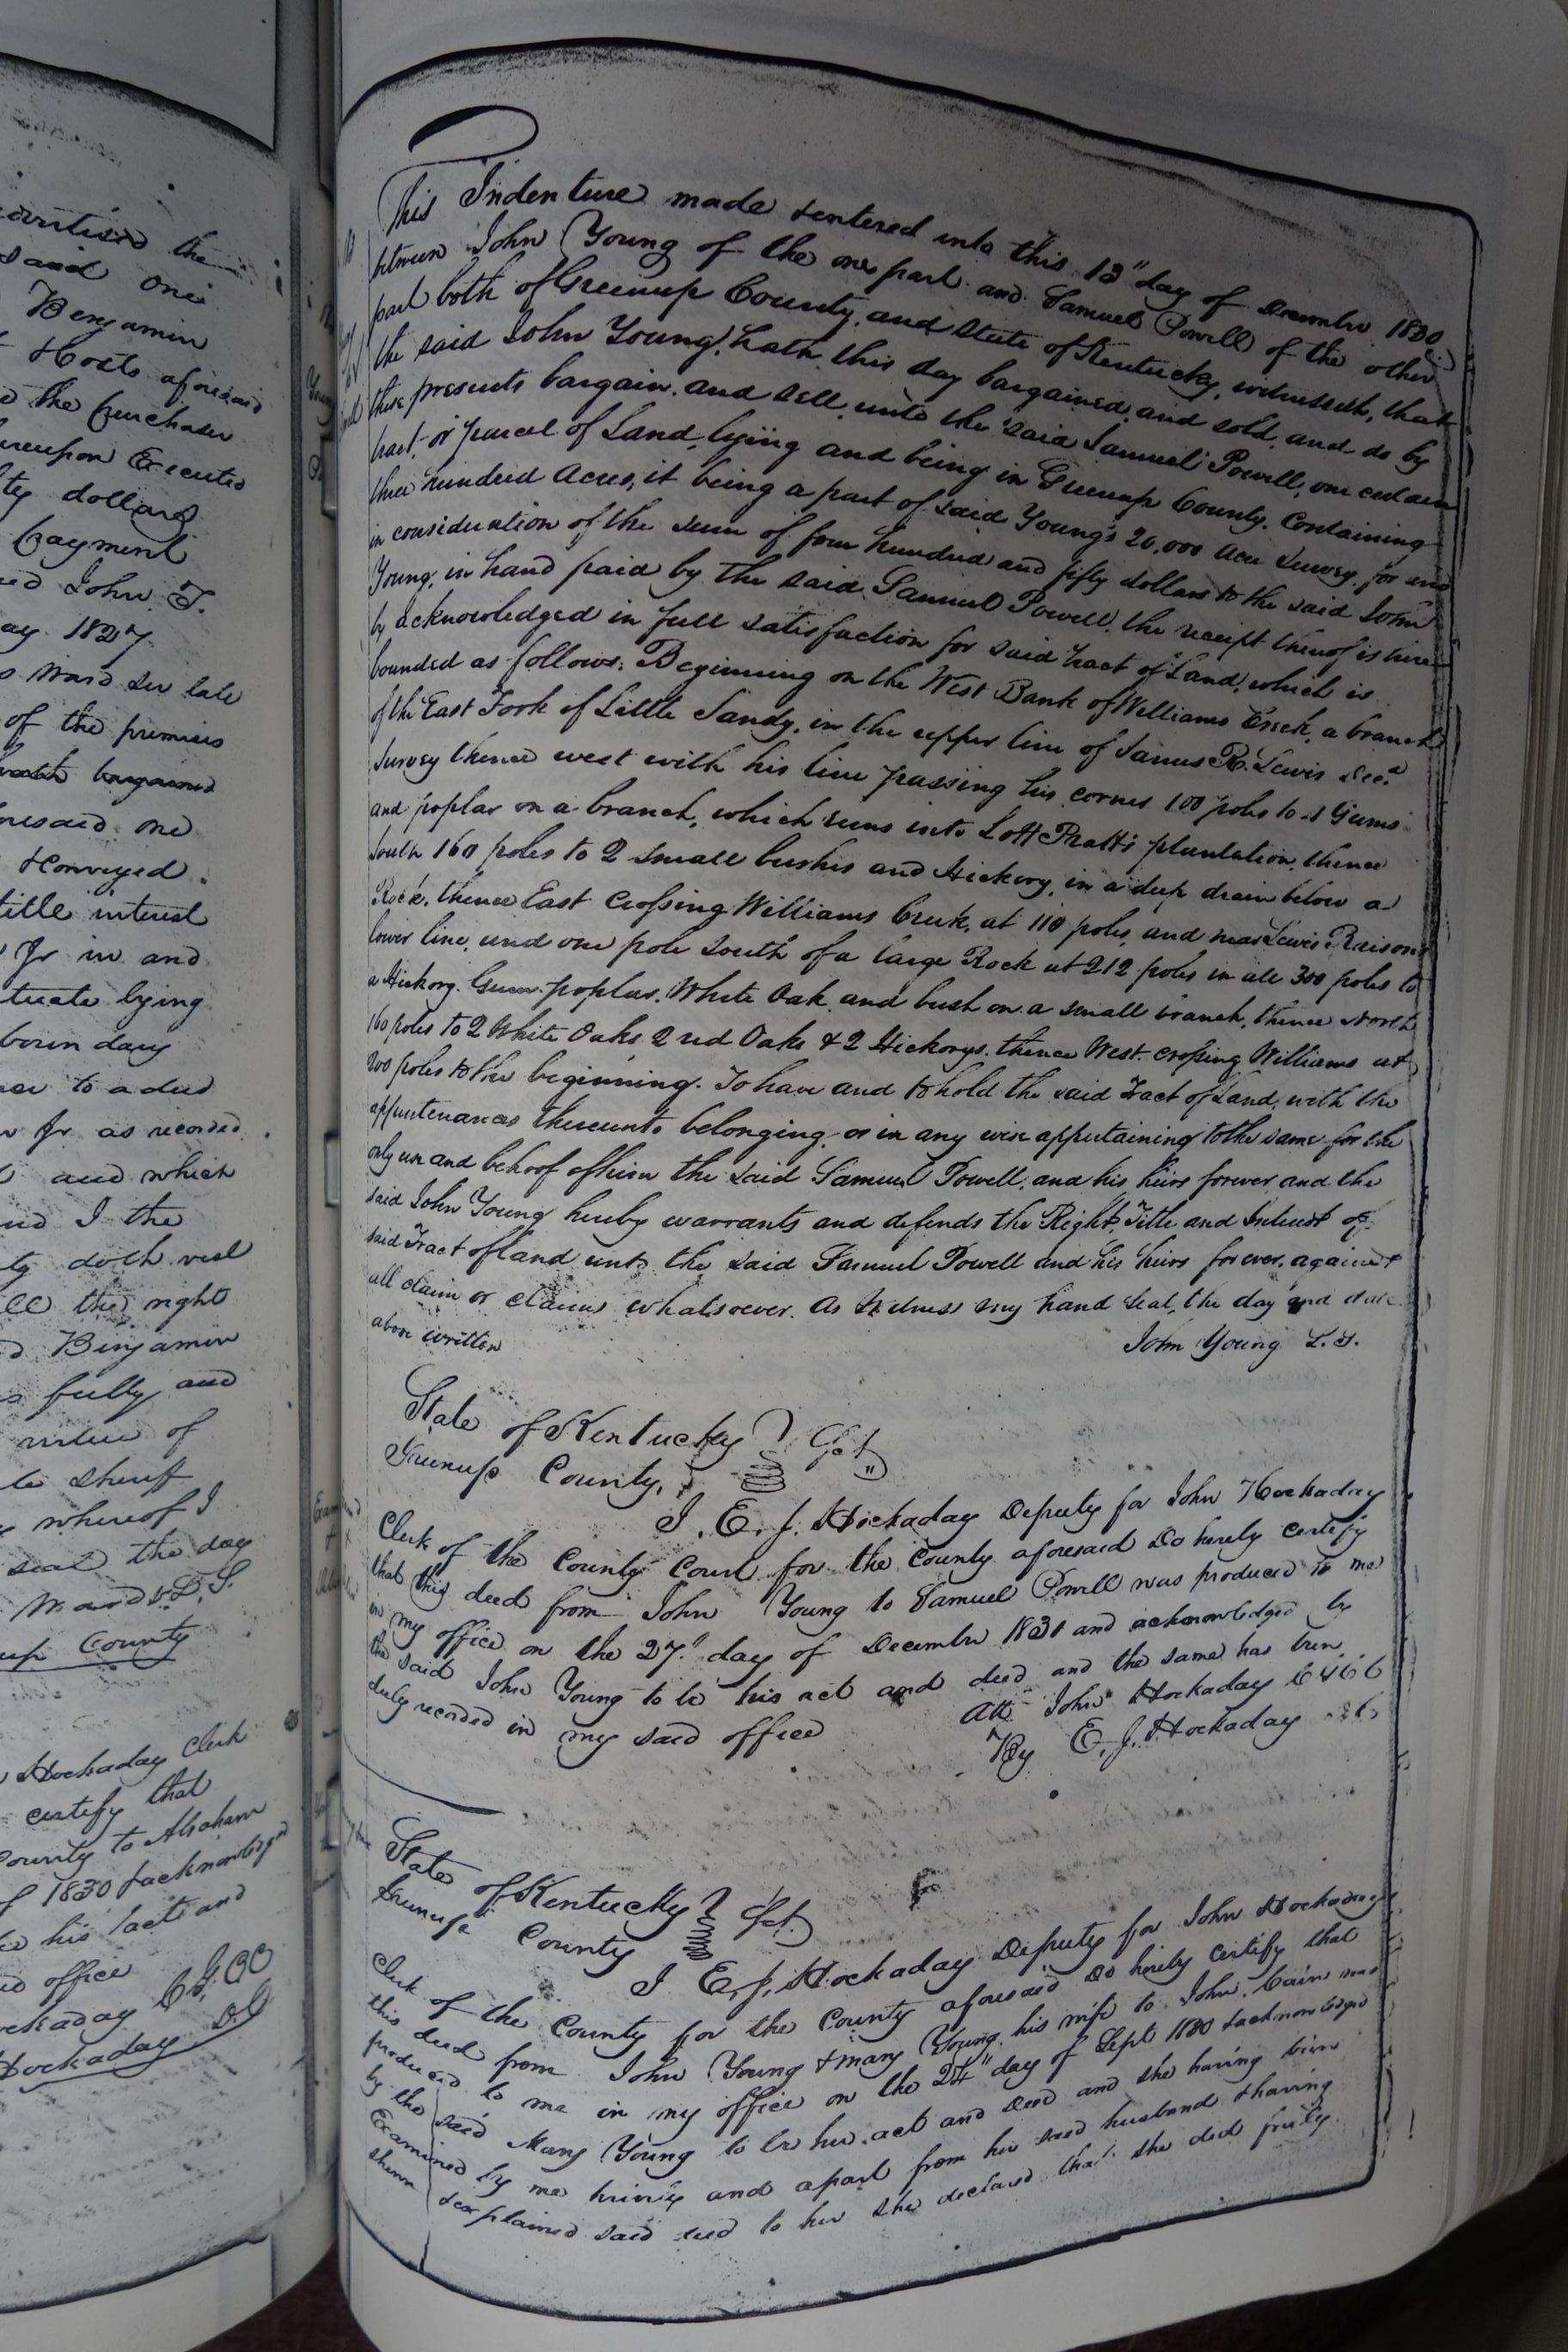 the
and one
Benjamin
Hoods aforesaid
the purchaser
Executed
ty dollars
payment
John T.
ay 1827
Ward
of the premises
bargained
one
& conveyed
title interest
Jr in and
lying
born dau
to a deed
Jr as recorded
and which
I the
ty doth
the right
Benjamin
fully and
virtue of
sheriff
whereof I
seal the day
Ward L.S.
up County
Hockaday Clerk
certify that
County to Abraham
of 1830 & acknowledged
his act and
office
Hockaday
Hockaday D.C
This Indenture made & entered into this 13" day of December 1830
between John Young of the one part and Samuel Powell of the other
part both of Greenup County, and State of Kentucky, witnesseth, that
the said John Young, hath this day bargained and sold, and do by
these presents bargain and sell, unto the said Samuel Powell, one certain
tract, or parcel of Land, lying and being in Greenup County, Containing
three hundred Acres, it being a part of said Young's 20,000 acre Survey, for and
in consideration of the sum of four hundred and fifty dollars to the said John
Young, in hand paid by the said Samuel Powell, the receipt thereof is here
by Acknowledged in full satisfaction for said tract of Land, which is
bounded as follows: Beginning on the West Bank of Williams Creek, a branch
of the East Fork of Little Sandy, in the upper line of James R. Lewis
Survey thence west with his line passing his corner 100 poles to Gums
and poplar on a branch, which runs into Lott Pratt's plantation, thence
South 160 poles to 2 small bushes and Hickory, in a deep drain below a
Rock, thence East Crossing Williams Creek, at 110 poles, and near Lewis Raisons
lower line, and one pole South of a large Rock at 212 poles in all 300 poles to
a Hickory. Gum. poplar. White Oak. and bush on a small branch, thence North
160 poles to 2 White Oaks 2 red Oaks & 2 Hickorys. thence West. crossing Williams at
200 poles to the beginning. To have and to hold the said Tract of Land, with the
appurtenances thereunto belonging, or in any wise appertaining to the same for the
only use and behoof of him the said Samuel Powell, and his heirs forever and the
said John Young hereby warrants and defends the Right, Title and Interest of
said Tract of land unto the said Samuel Powell and his heirs forever, against
all claim or claims whatsoever. As Witness my hand Seal, the day and date
above written
John Young L.S.
State of Kentucky
Greenup County, Sct
I, E. J. Hockaday Deputy for John Hockaday
Clerk of the County Court for the County aforesaid Do hereby certify
that this deed from John Young to Samuel Powell was produced to me
in my office on the 27" day of December 1830 and acknowledged by
the said John Young to be his act and deed and the same has been
duly recorded in my said office
Att John Hockaday
By E. J. Hockaday
State of Kentucky
Greenup County Sct.
I E, J, Hockaday Deputy for John Hockaday
Clerk of the County for the County aforesaid Do hereby certify that
this deed from John Young & Mary Young his wife to John Cain was
produced to me in my office on the 24" day of Sept 1830 & acknowledged
by the said Mary Young to be her act and deed and she having been
Examined by me privily and apart from her said husband & having
shewn & explained said deed to her she declared that she did freely